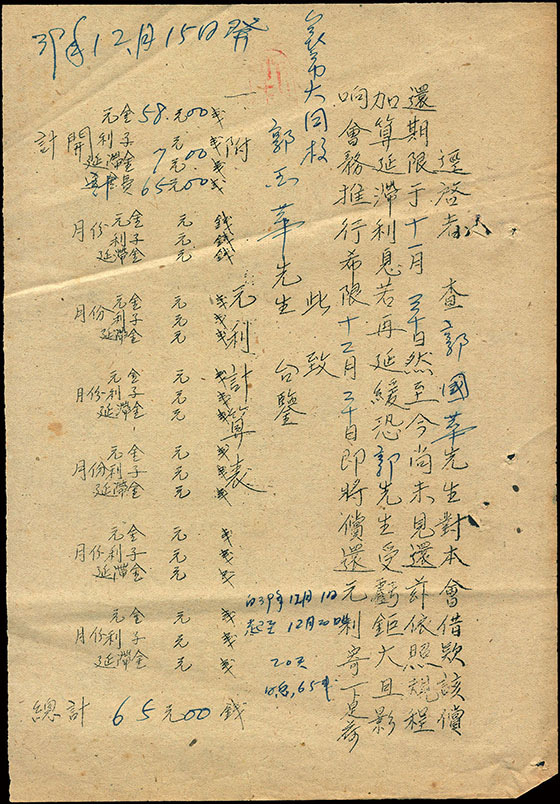 逕啓者 查郭國華先生對本會借款該償
還期限于十一月三十日然至今尚未見還茲依照規程
加算延滯利息若再延緩恐郭先生受虧鉅大且影
响會務推行希限十二月二十日即將償還元利寄下是荷
此致
郭玉華先生 台鑒
39年12月15日發
一 附 元利計算表
計開
元金 58元00戋
利子 元
延滯金 7元00戋
65元00戋
月份
元金 元 錢
利子 元 錢
延滯金 元 錢
月份
元金 元 戋
利子 元 戋
延滯金 元 戋
月份
元金 元 戋
利子 元 戋
延滯金 元 戋
月份
元金 元 戋
利子 元 戋
延滯金 元 戋
月份
元金 元 戋
利子 元 戋
延滯金 元 戋
月份
元金 元 戋
利子 元 戋
延滯金 元 戋
自39年12月1日
起至12月20日
20天
總計 65元00錢